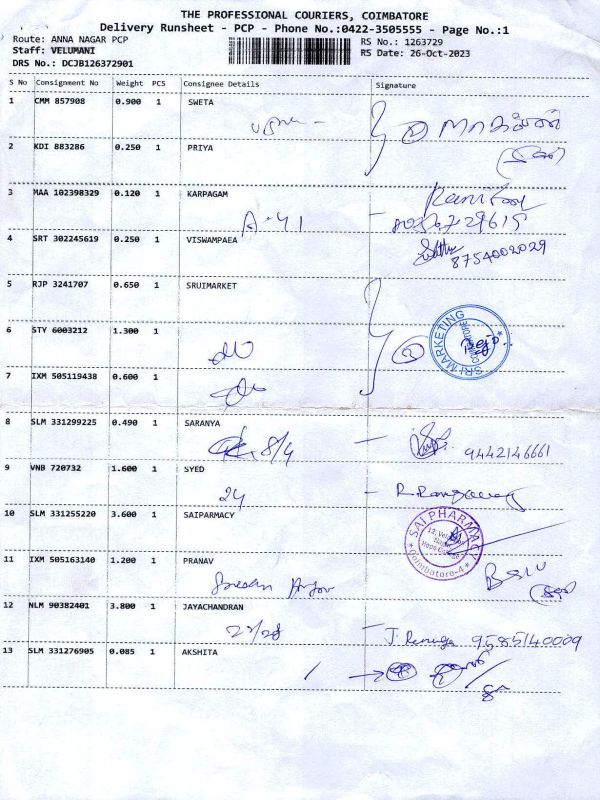 THE PROFESSIONAL COURIERS, COIMBATORE
Delivery Runsheet - PCP - Phone No.:0422-3505555 - Page No.:1
Route: ANNA NAGAR PCP
RS No.: 1263729
Staff: VELUMANI
RS Date: 26-Oct-2023
DRS No.: DCJB126372901
S No Consignment No Weight PCS Consignee Details Signature
1 CMM 857908 0.900 1 SWETA
2 KDI 883286 0.250 1 PRIYA
3 MAA 102398329 0.120 1 KARPAGAM
A-41
4 SRT 302245619 0.250 1 VISWAMPAEA
8754002029
5 RJP 3241707 0.650 1 SRUIMARKET
SRI MARKETING COIMBATORE
6 STY 6003212 1.300 1
do
2
7 IXM 505119438 0.600 1
do
8 SLM 331299225 0.490 1 SARANYA
8/4 - 9442146661
9 VNB 720732 1.600 1 SYED
24 -
10 SLM 331255220 3.600 1 SAIPARMACY
SAI PHARMACY
Coimbatore-4
11 IXM 505163140 1.200 1 PRANAV
12 NLM 90382401 3.800 1 JAYACHANDRAN
27/28 - J. Renuga 9585140009
13 SLM 331276905 0.085 1 AKSHITA